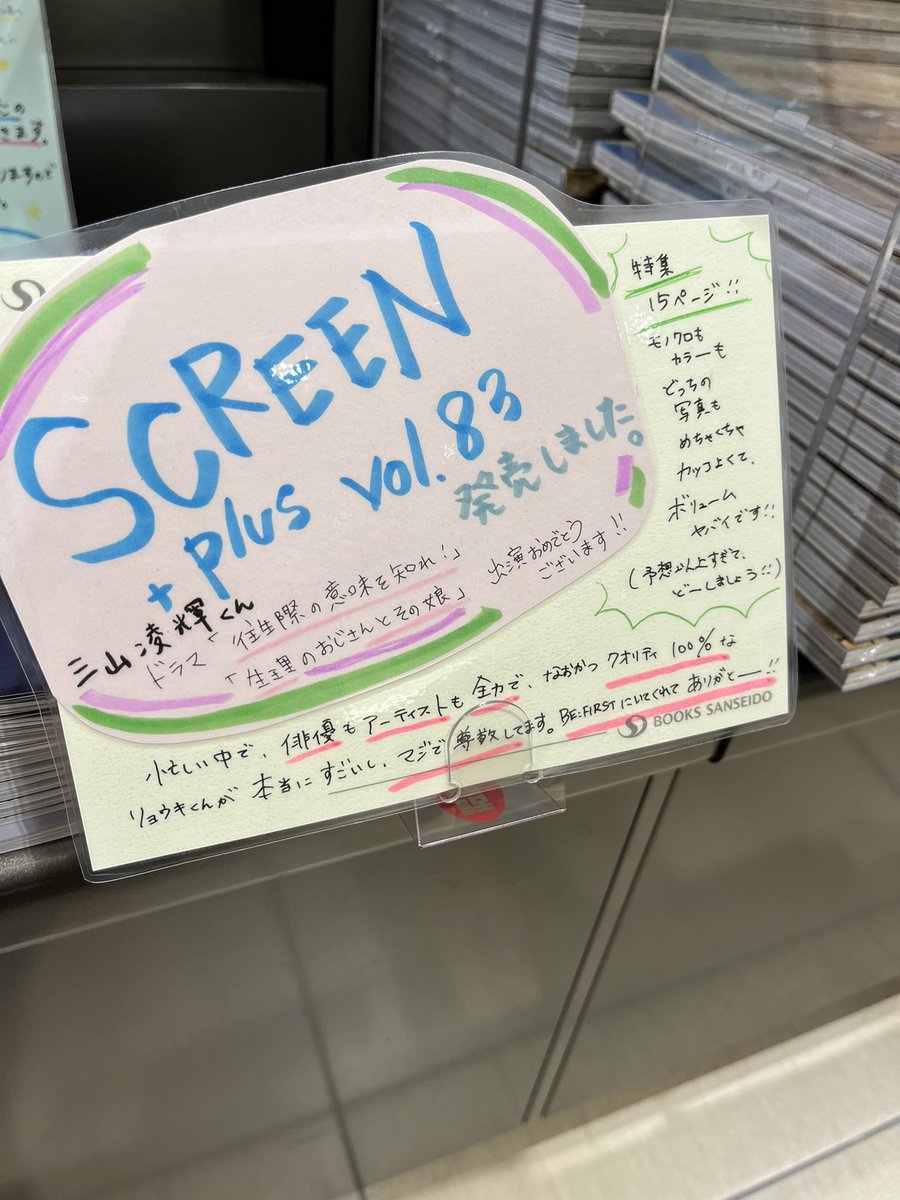 SCREEN
+ plus vol.83
発売しました。
三山凌輝くん
ドラマ「往生際の意味を知れ!」
「生理のおじさんとその娘」
出演おめでとう
ございます!!
特集
15ページ!!
モノクロも
カラーも
どっちの
写真も
めちゃくちゃ
カッコよくて、
ボリューム
ヤバイです!!
(予想以上すぎて、
どーしましょう!!)
忙しい中で、俳優もアーティストも全力で、なおかつクオリティ100%な
リョウキくんが本当にすごいし、マジで尊敬してます。BE:FIRSTにいてくれてありがとー!!
BOOKS SANSEIDO
きます。